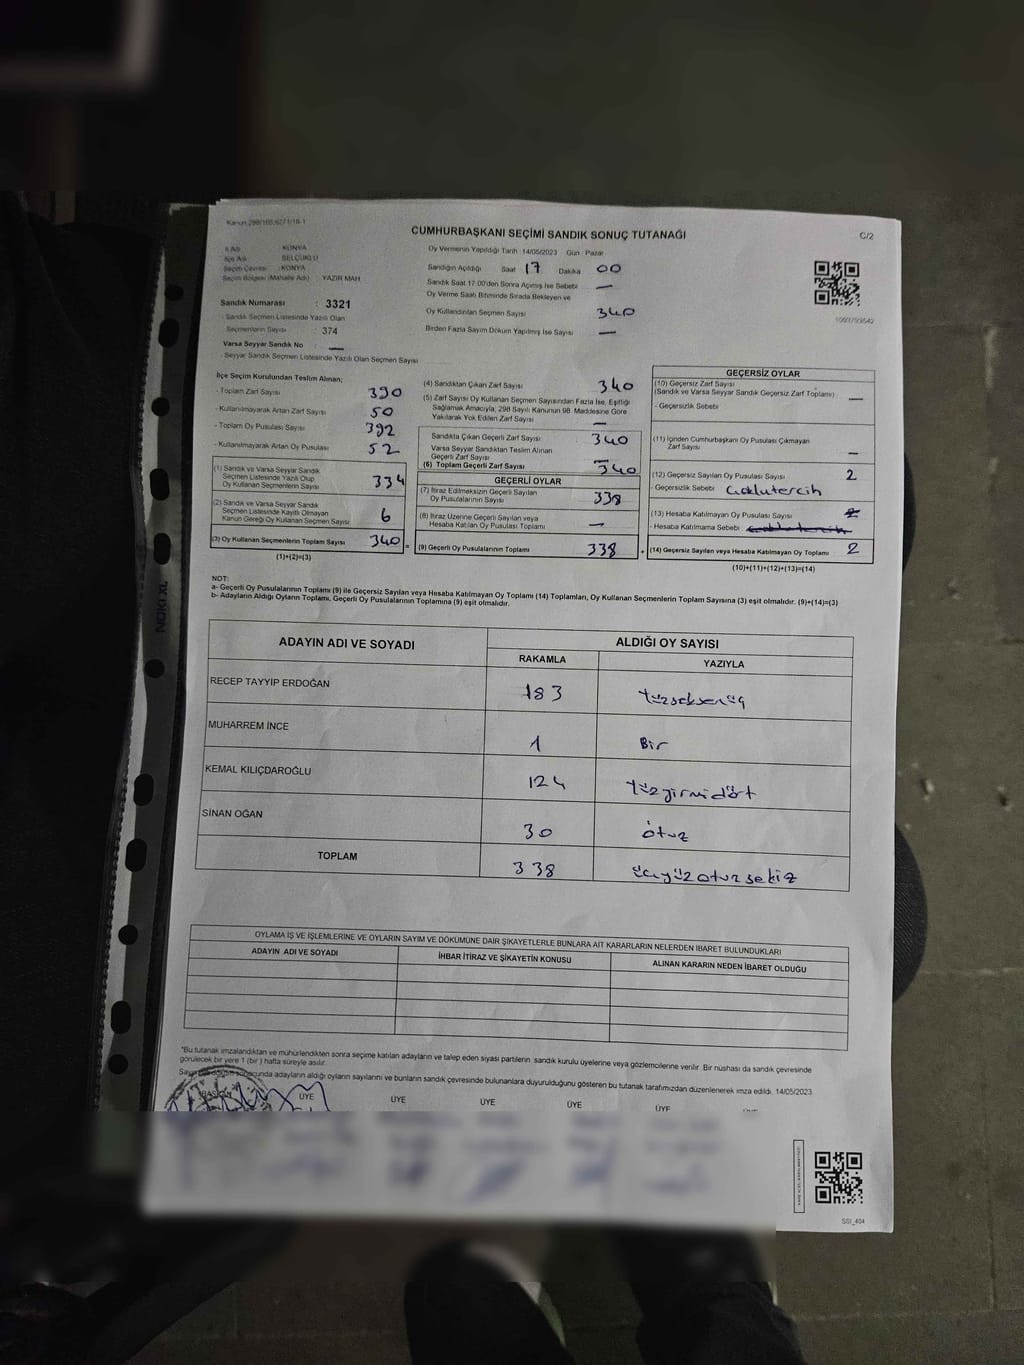 Kanun 298/105;6271/18-1
CUMHURBAŞKANI SEÇİMİ SANDIK SONUÇ TUTANAĞI
C/2
İl Adı : KONYA
İlçe Adı : SELÇUKLU
Seçim Çevresi : KONYA
Seçim Bölgesi (Mahalle Adı) YAZIR MAH
Sandık Numarası : 3321
- Sandık Seçmen Listesinde Yazılı Olan
Seçmenlerin Sayısı : 374
Varsa Seyyar Sandık No : —
- Seyyar Sandık Seçmen Listesinde Yazılı Olan Seçmen Sayısı
Oy Vermenin Yapıldığı Tarih :14/05/2023 Gün : Pazar
Sandığın Açıldığı Saat 17 Dakika 00
Sandık Saat 17:00'den Sonra Açılmış İse Sebebi —
Oy Verme Saati Bitiminde Sırada Bekleyen ve
Oy Kullandırılan Seçmen Sayısı 340
Birden Fazla Sayım Döküm Yapılmış İse Sayısı —
İlçe Seçim Kurulundan Teslim Alınan;
- Toplam Zarf Sayısı 390
- Kullanılmayarak Artan Zarf Sayısı 50
- Toplam Oy Pusulası Sayısı 392
- Kullanılmayarak Artan Oy Pusulası 52
(1) Sandık ve Varsa Seyyar Sandık
Seçmen Listesinde Yazılı Olup
Oy Kullanan Seçmenlerin Sayısı 334
(2) Sandık ve Varsa Seyyar Sandık
Seçmen Listesinde Kayıtlı Olmayan
Kanun Gereği Oy Kullanan Seçmen Sayısı 6
(3) Oy Kullanan Seçmenlerin Toplam Sayısı 340 =
(1)+(2)=(3)
(4) Sandıktan Çıkan Zarf Sayısı 340
(5) Zarf Sayısı Oy Kullanan Seçmen Sayısından Fazla İse, Eşitliği
Sağlamak Amacıyla; 298 Sayılı Kanunun 98. Maddesine Göre
Yakılarak Yok Edilen Zarf Sayısı —
Sandıkta Çıkan Geçerli Zarf Sayısı 340
Varsa Seyyar Sandıktan Teslim Alınan
Geçerli Zarf Sayısı —
(6) Toplam Geçerli Zarf Sayısı 340
GEÇERLİ OYLAR
(7) İtiraz Edilmeksizin Geçerli Sayılan
Oy Pusulalarının Sayısı 338
(8) İtiraz Üzerine Geçerli Sayılan veya
Hesaba Katılan Oy Pusulası Toplamı —
(9) Geçerli Oy Pusulalarının Toplamı 338 +
GEÇERSİZ OYLAR
(10) Geçersiz Zarf Sayısı
(Sandık ve Varsa Seyyar Sandık Geçersiz Zarf Toplamı) —
- Geçersizlik Sebebi
(11) İçinden Cumhurbaşkanı Oy Pusulası Çıkmayan
Zarf Sayısı —
(12) Geçersiz Sayılan Oy Pusulası Sayısı 2
- Geçersizlik Sebebi Çoklutercih
(13) Hesaba Katılmayan Oy Pusulası Sayısı 2
- Hesaba Katılmama Sebebi
(14) Geçersiz Sayılan veya Hesaba Katılmayan Oy Toplamı 2
(10)+(11)+(12)+(13)=(14)
NOT:
a- Geçerli Oy Pusulalarının Toplamı (9) ile Geçersiz Sayılan veya Hesaba Katılmayan Oy Toplamı (14) Toplamları, Oy Kullanan Seçmenlerin Toplam Sayısına (3) eşit olmalıdır. (9)+(14)=(3)
b- Adayların Aldığı Oyların Toplamı, Geçerli Oy Pusulalarının Toplamına (9) eşit olmalıdır.
ADAYIN ADI VE SOYADI
ALDIĞI OY SAYISI
RAKAMLA YAZIYLA
RECEP TAYYIP ERDOĞAN 183 Yüzseksenüç
MUHARREM İNCE 1 Bir
KEMAL KILIÇDAROĞLU 124 Yüzyirmidört
SİNAN OĞAN 30 Otuz
TOPLAM 338 üçyüzotuzsekiz
OYLAMA İŞ VE İŞLEMLERİNE VE OYLARIN SAYIM VE DÖKÜMÜNE DAİR ŞİKAYETLERLE BUNLARA AİT KARARLARIN NELERDEN İBARET BULUNDUKLARI
ADAYIN ADI VE SOYADI
İHBAR İTİRAZ VE ŞİKAYETİN KONUSU
ALINAN KARARIN NEDEN İBARET OLDUĞU
*Bu tutanak imzalandıktan ve mühürlendikten sonra seçime katılan adayların ve talep eden siyasi partilerin sandık kurulu üyelerine veya gözlemcilerine verilir. Bir nüshası da sandık çevresinde
görülecek bir yere 1 (bir ) hafta süreyle asılır.
sonucunda adayların aldığı oyların sayılarını ve bunların sandık çevresinde bulunanlara duyurulduğunu gösteren bu tutanak tarafımızdan düzenlenerek imza edildi. 14/05/2023
BAŞKAN ÜYE ÜYE ÜYE ÜYE ÜYE
SSI_404
NOKI XL